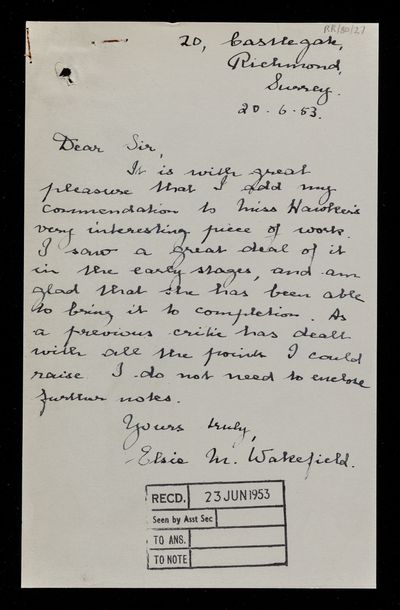 RR/80/27
20, Castlegate,
Richmond,
Surrey.
20.6.53.
Dear Sir,
It is with great
pleasure that I add my
commendation to Miss Hawker's
very interesting piece of work.
I saw a great deal of it
in the early stages, and am
glad that she has been able
to bring it to completion. As
a previous critic has dealt
with all the points I could
raise I do not need to enclose
further notes.
Yours truly,
Elsie M. Wakefield.
RECD. 23 JUN 1953
Seen by Asst Sec
TO ANS.
TO NOTE